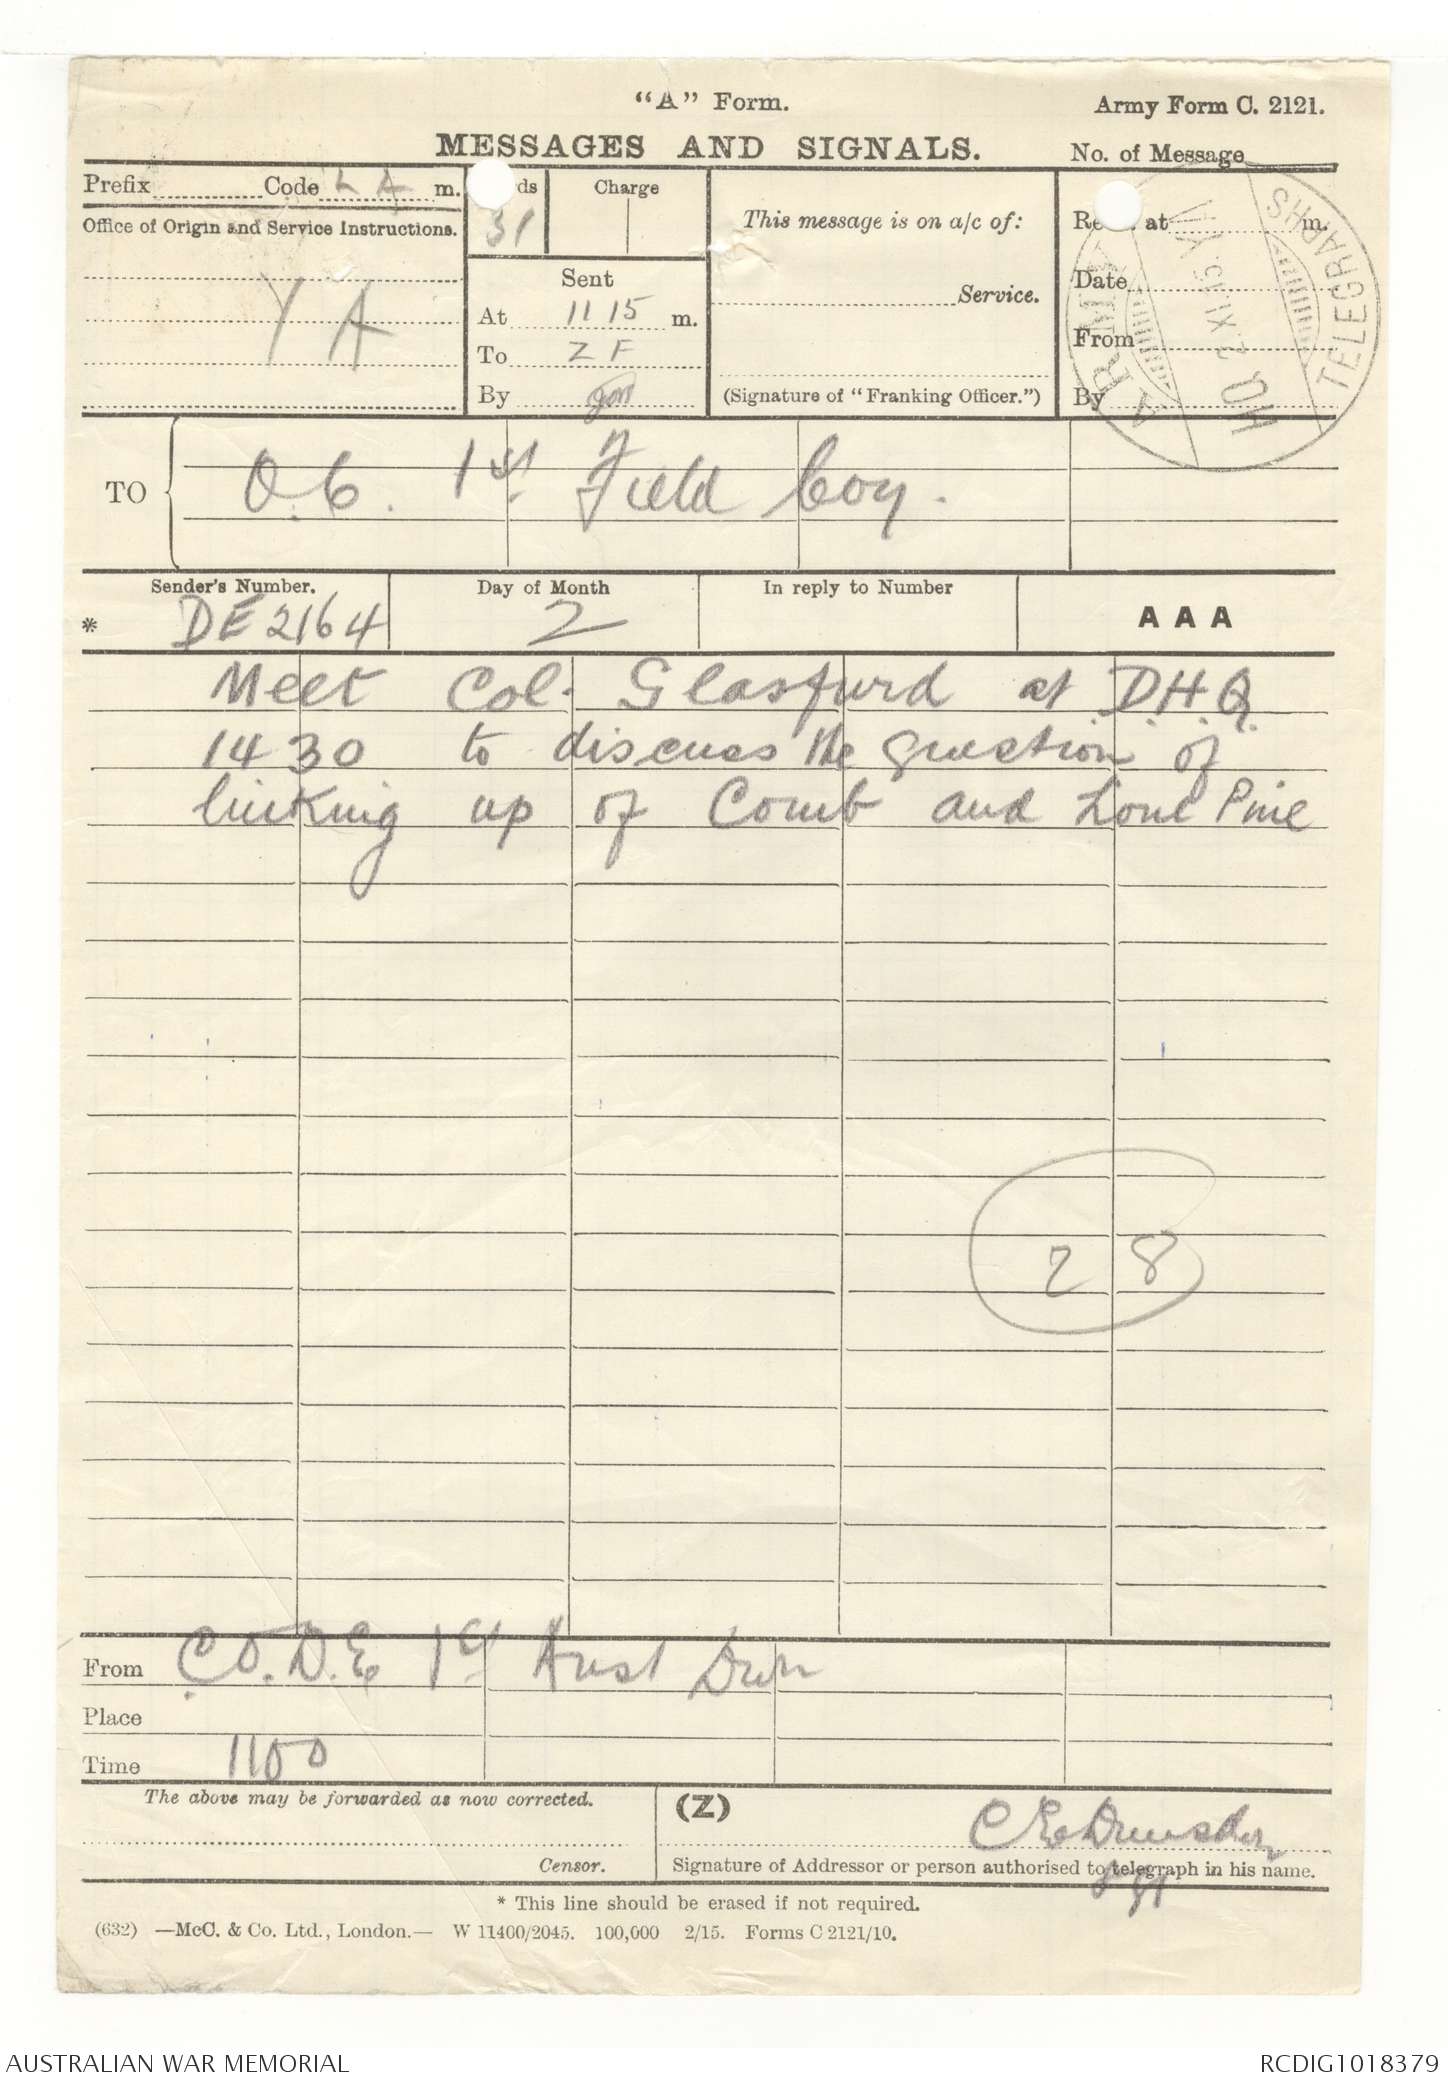 "A" Form.
Army Form C. 2121.
MESSAGES AND SIGNALS.
No. of Message
Prefix Code L A m.
ds
31
Charge
This message is on a/c of:
Re at m.
Office of Origin and Service Instructions.
Y A
Sent
At 11 15 m.
To Z F
By
Service.
(Signature of "Franking Officer.")
Date
From
By
ARMY TELEGRAPHS
HQ
2.XI.15
TO
O.C. 1st. Field Coy.
Sender's Number.
Day of Month
In reply to Number
AAA
* DE2164
2
Meet Col. Glasfurd at D.H.Q.
1430 to discuss the question of
linking up of Comb and Lone Pine
28
From C.O.D.E 1st Aust Divn
Place
Time 1100
The above may be forwarded as now corrected.
(Z)
Censor.
Signature of Addressor or person authorised to telegraph in his name.
* This line should be erased if not required.
(632) —McC. & Co. Ltd., London.— W 11400/2045. 100,000 2/15. Forms C 2121/10.
AUSTRALIAN WAR MEMORIAL
RCDIG1018379